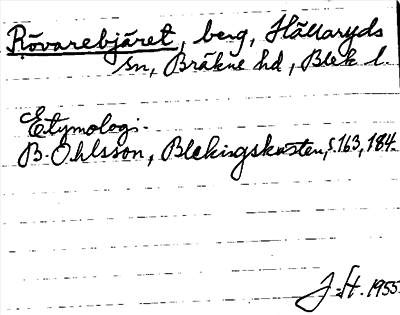 Rövarebjäret, berg, Hällaryds
sn, Bräkne hd, Blek l.
Etymologi.
B. Ohlsson, Blekingskusten, s. 163, 184.
J-St. 1955